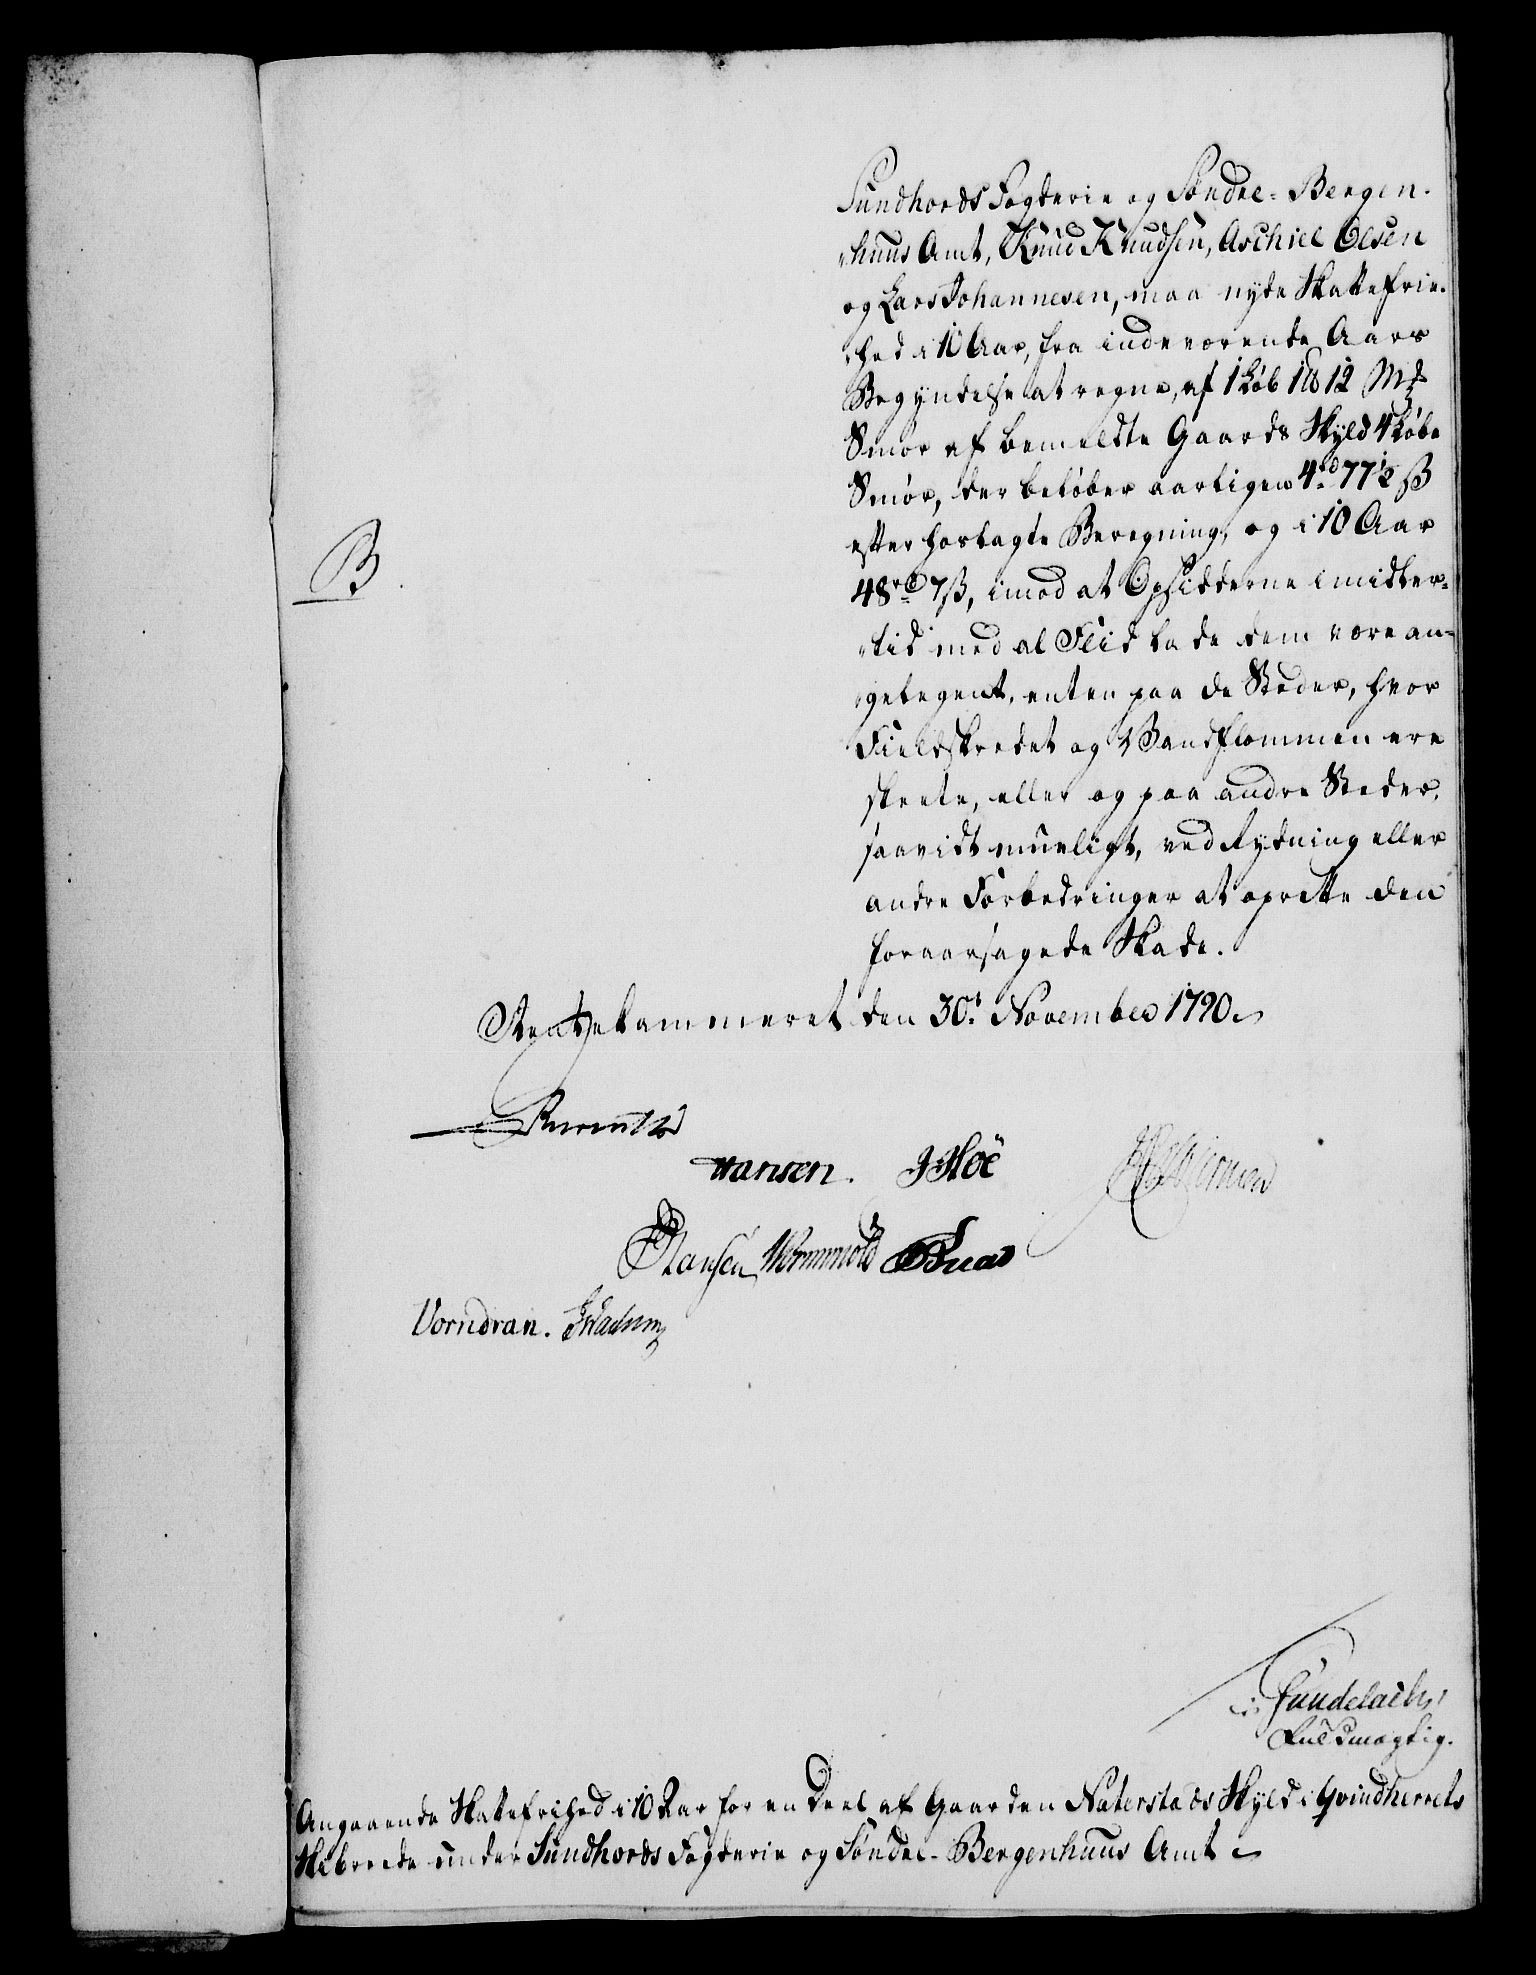 Sundhords Fogderie og Søndre-Bergen-
huus Amt, Knud Knudsen, Aschiel Olsen
og Lars Johannesen, maa nyde Skattefrie-
hed i 10 Aar, fra indeværende Aars
Begyndelse at regne, af 1 Løb 1 ℔ 12 Mk
Smør af bemeldte Gaards Skyld 4 Løbe
Smør, der beløber aarligen 4 rd 77½ ß
efter forlagte Beregning, og i 10 Aar
48 rd 7 ß, imod at Opsidderne imidler-
tid med al Fliid lade dem være an-
gelegent, enten paa de Steder, hvor
Fieldskredet og Vandflommen ere
skeete, eller og paa andre Steder,
saavidt mueligt, ved Rydning eller
andre Forbedringer at oprette den
foraarsagede Skade.
B.
Rentekammeret den 30t November 1790.
Reventlow
Hansen. JHoë
PHansen Wormwold
Vorndran.
Gundelach,
Fuldmægtig.
Angaaende Skattefrihed i 10 Aar for en Deel af Gaarden Naterstads Skyld i Qvindherrets
Skibrede under Sundhords Fogderie og Søndre-Bergenhuus Amt